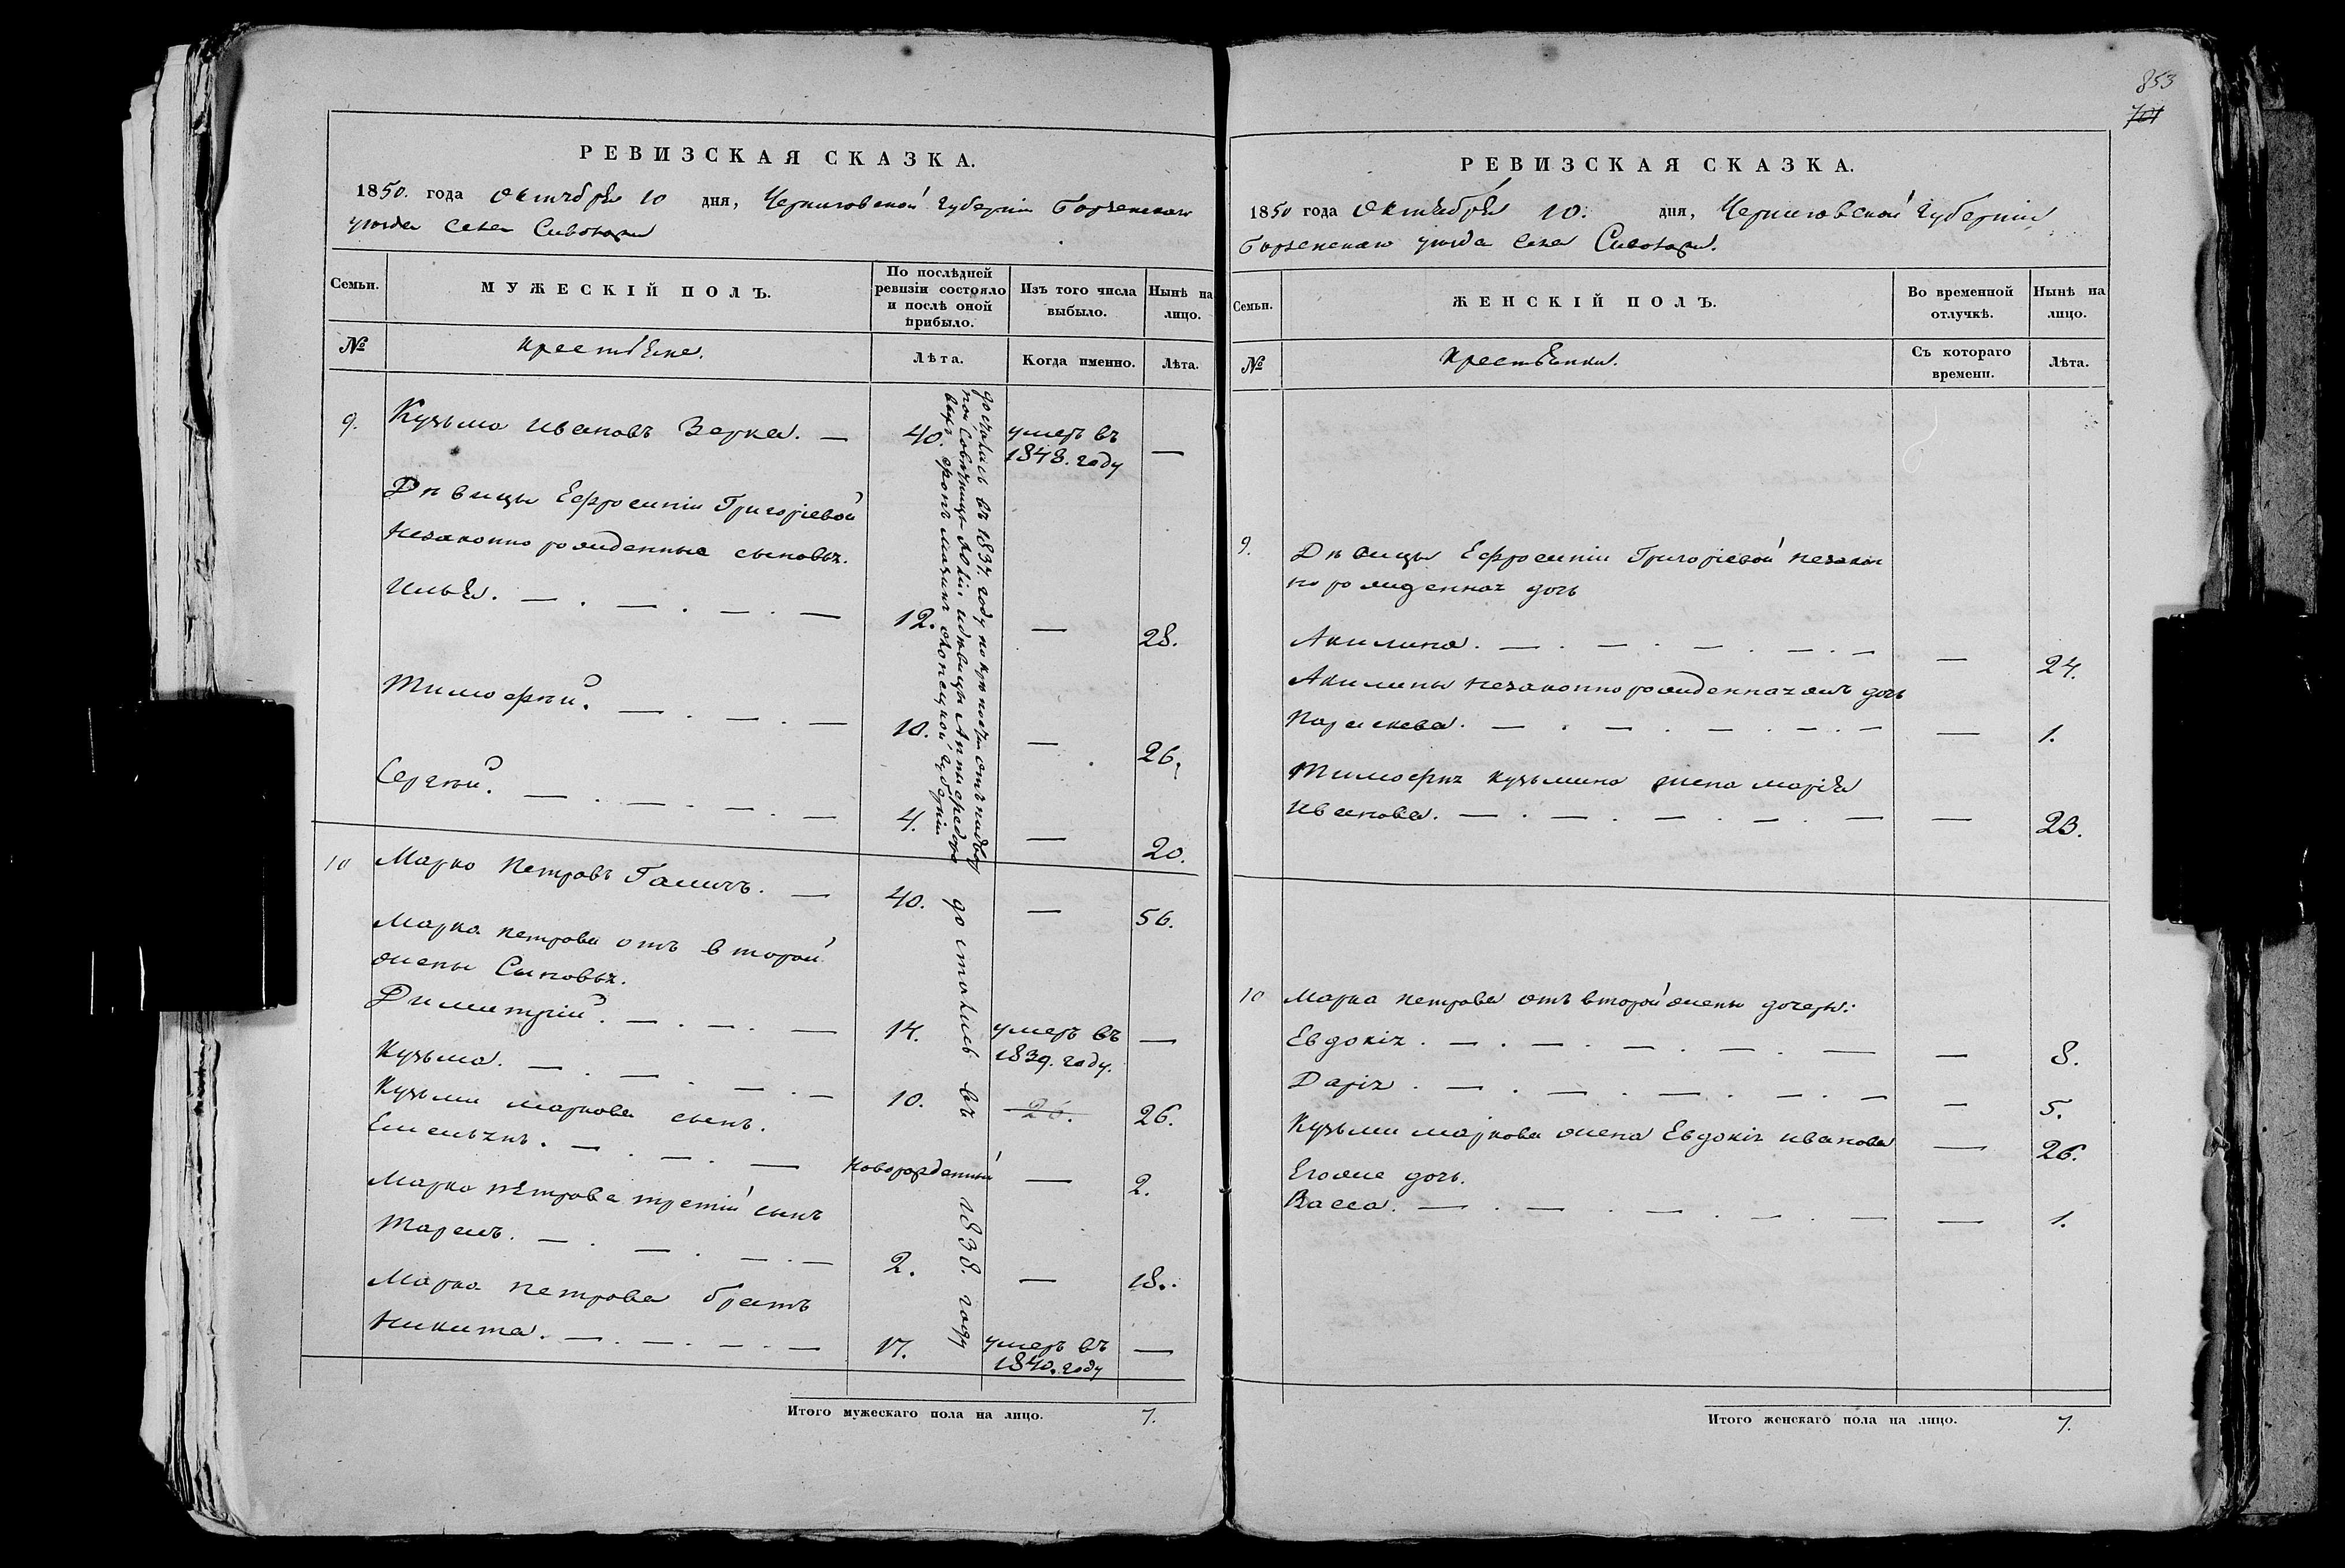 РЕВИЗСКАЯ СКАЗКА.
1850. года Октября 10 дня, Черниговской Губерніи Борзенскаго
уезда села
Семьи.
МУЖЕСКІЙ ПОЛЪ.
По послѣдней
ревизіи состояло
и послѣ оной
прибыло.
Изъ того числа
выбыло.
Нынѣ на
лицо.
№
Крестьяне.
Лѣта.
Когда именно.
Лѣта.
9. Кузьма Ивановъ Зерка. — 40. умеръ въ —
1848. году
Дѣвицы Ефросиніи Григоріевой
незаконно рожденные сыновья.
Илья. — . — . — . — 12. — 28.
Тимофѣй. — . — . — 10. — 26.
Сергѣй. — . — . — . — 4. — 20.
достались въ 1837. году по купчей отъ
10 Марко Петровъ Галичъ. — 40. — 56.
Марка Петрова отъ второй
жены Сыновья.
Димитрій. — . — . — 14. умеръ въ —
1839. году.
Кузьма. — . — . — . — 10. 26. 26.
Кузьмы Маркова сынъ.
Емельянъ. — . — . — новорожденный — 2.
Марка Петрова третій сынъ
Тарасъ. — . — . — . — 2. — 18.
Марка Петрова братъ
Никита. — . — . — . — 17. умеръ въ —
1840. году
достались въ 1838. году
Итого мужескаго пола на лицо. 7.
853
701
РЕВИЗСКАЯ СКАЗКА.
1850 года Октября 10. дня, Черниговской Губерніи
Борзенскаго уезда села
Семьи.
ЖЕНСКІЙ ПОЛЪ.
Во временной
отлучкѣ.
Нынѣ на
лицо.
№
Крестьянки.
Съ котораго
времени.
Лѣта.
9. Дѣвицы Ефросиніи Григоріевой незакон
но рожденная дочь
Акилина. — . — . — . — . — — 24.
Акилины незаконно рожденная жъ дочь
Параскева. — . — . — . — . — — 1.
Тимофея Кузьмина жена Марія
Иванова. — . — . — . — . — — 23.
10 Марка Петрова отъ второй жены дочери:
Евдокія. — . — . — . — . — — 8.
Дарія. — . — . — . — . — — 5.
Кузьмы Маркова жена Евдокія Иванова — 26.
Егоже дочь.
Васса. — . — . — . — . — — 1.
Итого женскаго пола на лицо. 7.